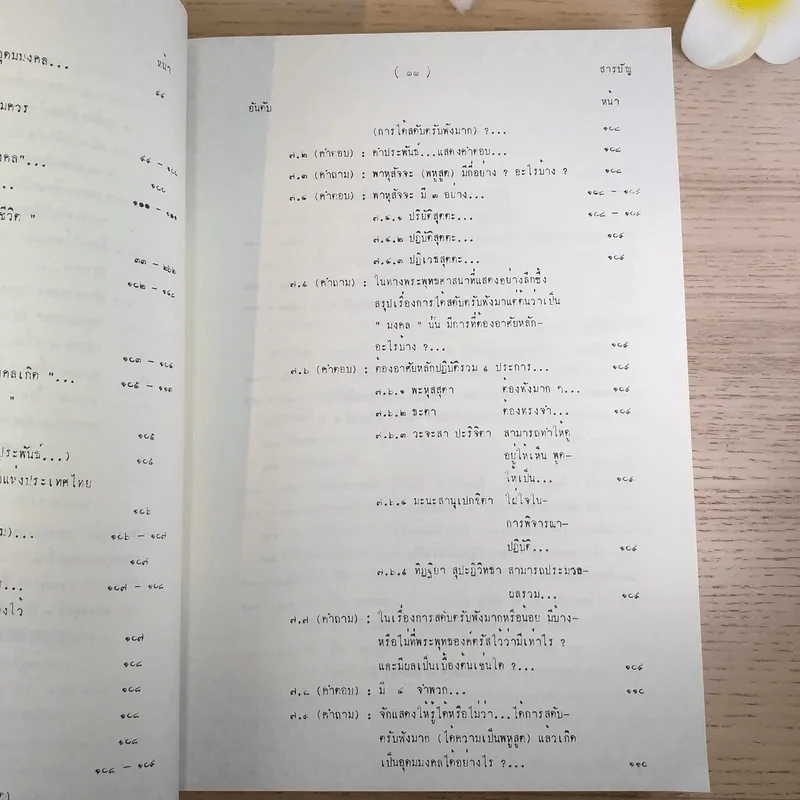 อุดมมงคล...
หน้า
๙๙
มควร
คล"...
๙๙ - ๑๐๐
...
๑๐๐
๑๐๐ - ๑๑๑
ชีวิต "
๓๓ - ๒๖๒
๑๐๒ - ๑๐๘
๑๐๓ - ๑๐๔
คลเกิด "...
๑๐๕ - ๑๑๓
"
๑๐๕
ประพันธ์...)
๑๐๕
แห่งประเทศไทย
๑๐๖
ม)...
๑๐๖ - ๑๐๗
๑๐๗
...
๑๐๗ - ๑๐๘
งไว้
๑๐๗
๑๐๘
๑๐๘
๑๐๘
๑๐๘
๑๐๘ - ๑๐๙
( ๑๑ )
สารบัญ
อันดับ
หน้า
(การได้สดับตรับฟังมาก) ?... ๑๐๘
๗.๒ (คำตอบ) : คำประพันธ์...แสดงคำตอบ... ๑๐๘
๗.๓ (คำถาม) : พาหุสัจจะ (พหูสูต) มีกี่อย่าง ? อะไรบ้าง ? ๑๐๘
๗.๔ (คำตอบ) : พาหุสัจจะ มี ๓ อย่าง... ๑๐๘ - ๑๐๙
๗.๔.๑ ปริยัติสุตตะ... ๑๐๘ - ๑๐๙
๗.๔.๒ ปฏิบัติสุตตะ... ๑๐๙
๗.๔.๓ ปฏิเวธสุตตะ... ๑๐๙
๗.๕ (คำถาม) : ในทางพระพุทธศาสนาที่แสดงอย่างลึกซึ้ง
สรุปเรื่องการได้สดับตรับฟังมาแต่ต้นว่าเป็น
" มงคล " นั้น มีการที่ต้องอาศัยหลัก-
อะไรบ้าง ?... ๑๐๙
๗.๖ (คำตอบ) : ต้องอาศัยหลักปฏิบัติรวม ๕ ประการ... ๑๐๙
๗.๖.๑ พะหุสสุตา ต้องฟังมาก ๆ... ๑๐๙
๗.๖.๒ ธะตา ต้องทรงจำ... ๑๐๙
๗.๖.๓ วะจะสา ปะริจิตา สามารถทำให้ดู
อยู่ให้เห็น พูด-
ให้เป็น... ๑๐๙
๗.๖.๔ มะนะสานุเปกขิตา ใฝ่ใจใน-
การพิจารณา-
ปฏิบัติ... ๑๐๙
๗.๖.๕ ทิฏฐิยา สุปะฏิวิทธา สามารถประมวล-
ผลรวม... ๑๐๙
๗.๗ (คำถาม) : ในเรื่องการสดับตรับฟังมากหรือน้อย มีบ้าง-
หรือไม่ที่พระพุทธองค์ตรัสไว้ว่ามีเท่าไร ?
และมีผลเป็นเบื้องต้นเช่นใด ?... ๑๐๙
๗.๘ (คำตอบ) : มี ๔ จำพวก... ๑๑๐
๗.๙ (คำถาม) : จักแสดงให้รู้ได้หรือไม่ว่า...ได้การสดับ-
ตรับฟังมาก (ได้ความเป็นพหูสูต) แล้วเกิด
เป็นอุดมมงคลได้อย่างไร ?... ๑๑๐